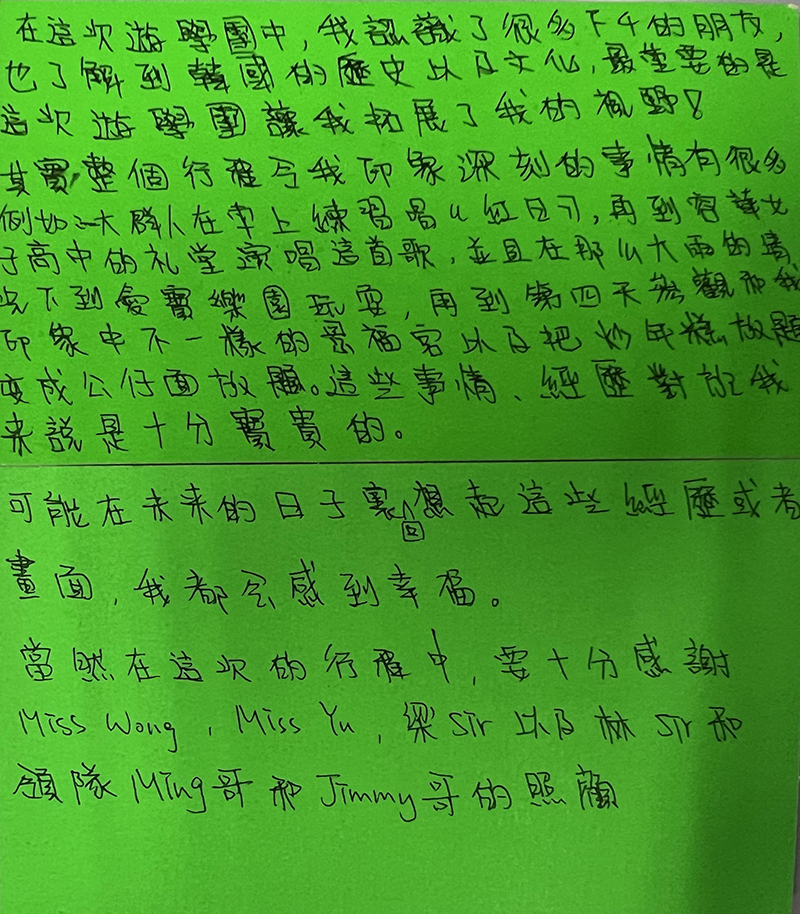 在這次遊學團中,我認識了很多下午的朋友,
也了解到韓國的歷史以及文化,最重要的是
這次遊學團讓我拓展了我的視野!
其實,整個行程令我印象深刻的事情有很多
例如:一大群人在車上練習唱《紅日》,再到容華女
子高中的礼堂演唱這首歌,並且在那么大雨的情
况下到愛寶樂園玩耍,再到第四天參觀和我
印象中不一樣的景福宮以及把炒年糕放題
变成公仔面放題。這些事情、經歷對於我
来說是十分寶貴的。
可能在未来的日子裏回想起這些經歷或者
畫面,我都会感到幸福。
當然在這次的行程中,要十分感謝
Miss Wong,Miss Yu,梁Sir以及林Sir和
領隊Ming哥和Jimmy哥的照顧